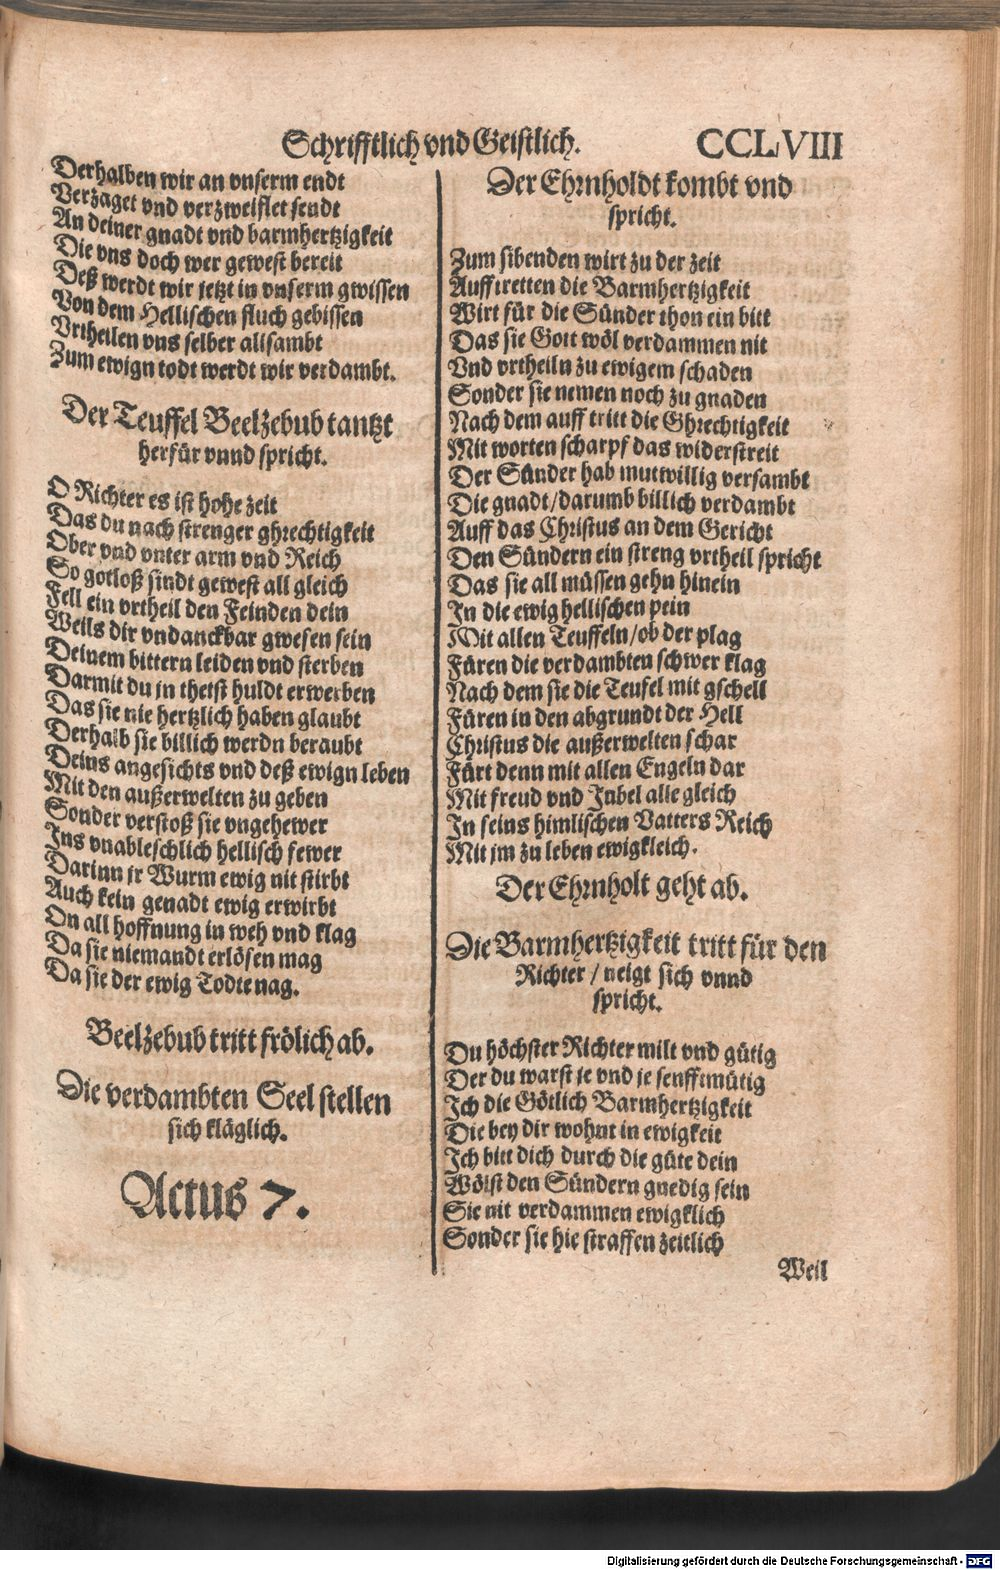 Schrifftlich vnd Geistlich. CCLVIII
Derhalben wir an vnserm endt
Verzaget vnd verzweiflet sendt
An deiner gnadt vnd barmhertzigkeit
Die vns doch wer gewest bereit
Deß werdt wir jetzt in vnserm gwissen
Von dem Hellischen fluch gebissen
Vrtheilen vns selber allsambt
Zum ewign todt werdt wir verdambt.
Der Teuffel Beelzebub tantzt
herfür vnnd spricht.
O Richter es ist hohe zeit
Das du nach strenger ghrechtigkeit
Ober vnd vnter arm vnd Reich
So gotloß sindt gewest all gleich
Fell ein vrtheil den Feinden dein
Weils dir vndanckbar gwesen sein
Deinem bittern leiden vnd sterben
Darmit du jn thetst huldt erwerben
Das sie nie hertzlich haben glaubt
Derhalb sie billich werdn beraubt
Deins angesichts vnd deß ewign leben
Mit den außerwelten zu geben
Sonder verstoß sie vngehewer
Ins vnableschlich hellisch fewer
Darinn jr Wurm ewig nit stirbt
Auch kein genadt ewig erwirbt
On all hoffnung in weh vnd klag
Da sie niemandt erlösen mag
Da sie der ewig Todte nag.
Beelzebub tritt frölich ab.
Die verdambten Seel stellen
sich kläglich.
Actus 7.
Der Ehrnholdt kombt vnd
spricht.
Zum sibenden wirt zu der zeit
Aufftretten die Barmhertzigkeit
Wirt für die Sünder thon ein bitt
Das sie Gott wöl verdammen nit
Vnd vrtheiln zu ewigem schaden
Sonder sie nemen noch zu gnaden
Nach dem auff tritt die Ghrechtigkeit
Mit worten scharpf das widerstreit
Der Sünder hab mutwillig versambt
Die gnadt/darumb billich verdambt
Auff das Christus an dem Gericht
Den Sündern ein streng vrtheil spricht
Das sie all müssen gehn hinein
In die ewig hellischen pein
Mit allen Teuffeln/ob der plag
Füren die verdambten schwer klag
Nach dem sie die Teufel mit gschell
Füren in den abgrundt der Hell
Christus die außerwelten schar
Fürt denn mit allen Engeln dar
Mit freud vnd Jubel alle gleich
In seins himlischen Vatters Reich
Mit jm zu leben ewigkleich.
Der Ehrnholt geht ab.
Die Barmhertzigkeit tritt für den
Richter / neigt sich vnnd
spricht.
Du höchster Richter milt vnd gütig
Der du warst je vnd je senfftmütig
Ich die Götlich Barmhertzigkeit
Die bey dir wohnt in ewigkeit
Ich bitt dich durch die güte dein
Wölst den Sündern gnedig sein
Sie nit verdammen ewigklich
Sonder sie hie straffen zeitlich
Weil
Digitalisierung gefördert durch die Deutsche Forschungsgemeinschaft - DFG